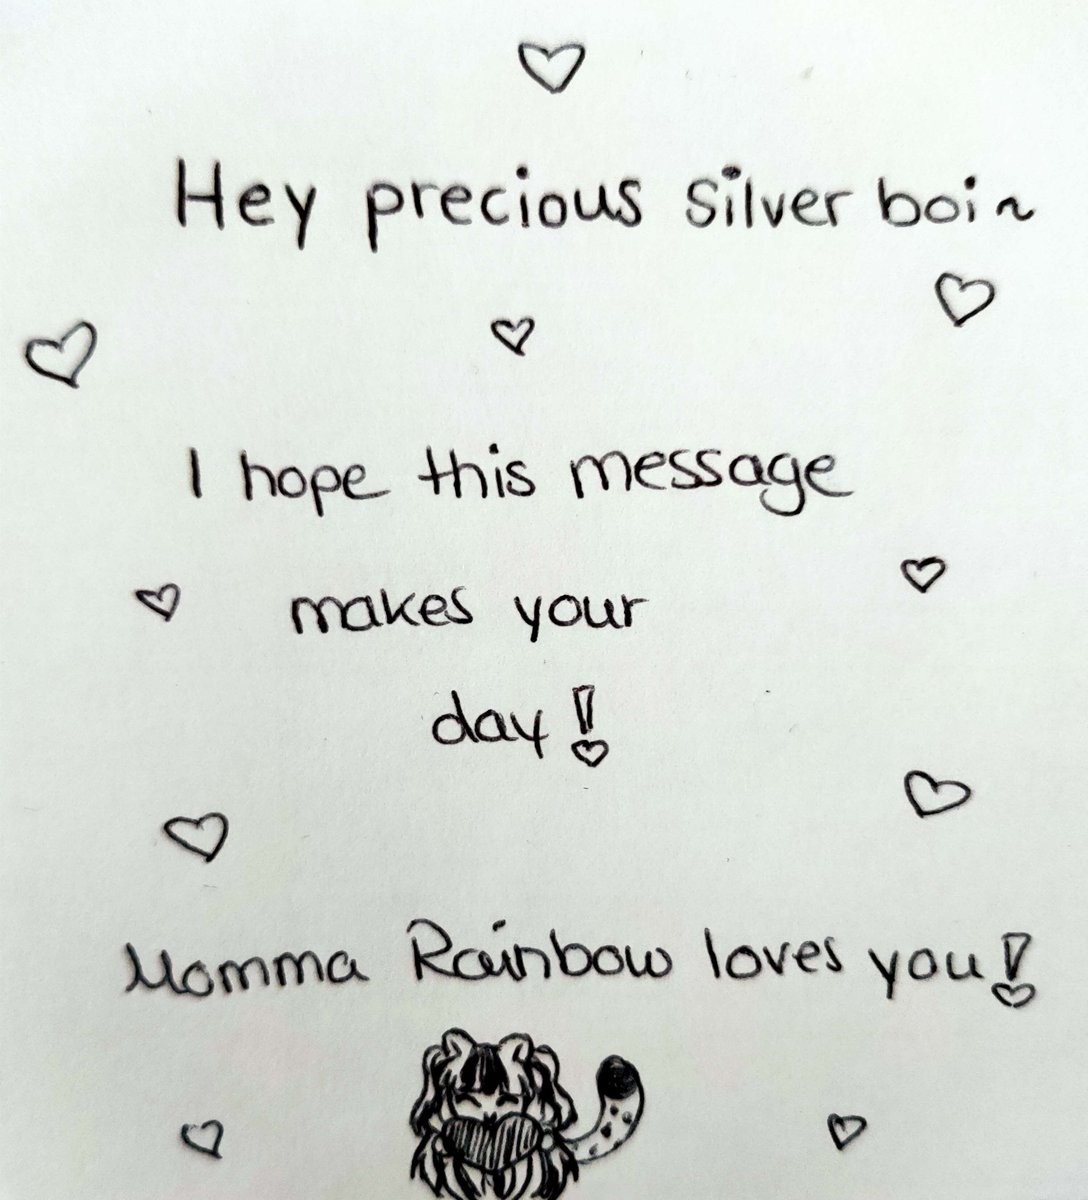 Hey precious silver boi~
I hope this message
makes your
day!
Momma Rainbow loves you!